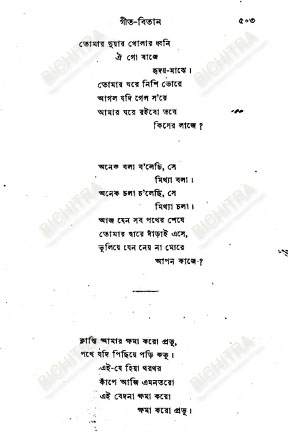 গীত-বিতান ৫০৩
তোমার দুয়ার খোলার ধ্বনি
ঐ গো বাজে
হৃদয়-মাঝে।
তোমার ঘরে নিশি ভোরে
আগল যদি গেল স'রে
আমার ঘরে রইবো তবে
কিসের লাজে?
অনেক বলা ব'লেছি, সে
মিথ্যা বলা।
অনেক চলা চ'লেছি, সে
মিথ্যা চলা।
আজ যেন সব পথের শেষে
তোমার দ্বারে দাঁড়াই এসে,
ভুলিয়ে যেন নেয় না মোরে
আপন কাজে?
ক্লান্তি আমার ক্ষমা করো প্রভু,
পথে যদি পিছিয়ে পড়ি কভু।
এই-যে হিয়া থরথর
কাঁপে আজি এমনতরো
এই বেদনা ক্ষমা করো
ক্ষমা করো প্রভু।
BICHITRA
BICHITRA
BICHITRA
BICHITRA
BICHITRA
BICHITRA